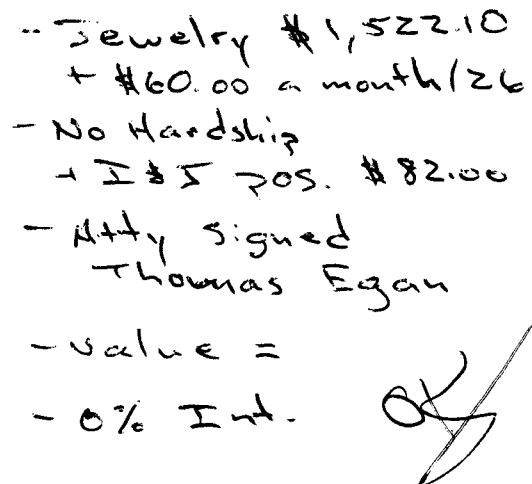 - Jewelry $1,522.10
+ $60.00 a month/26
- No Hardship
+ I$J pos. $82.00
- Atty signed
Thomas Egan
- value =
- 0% Int.
OK